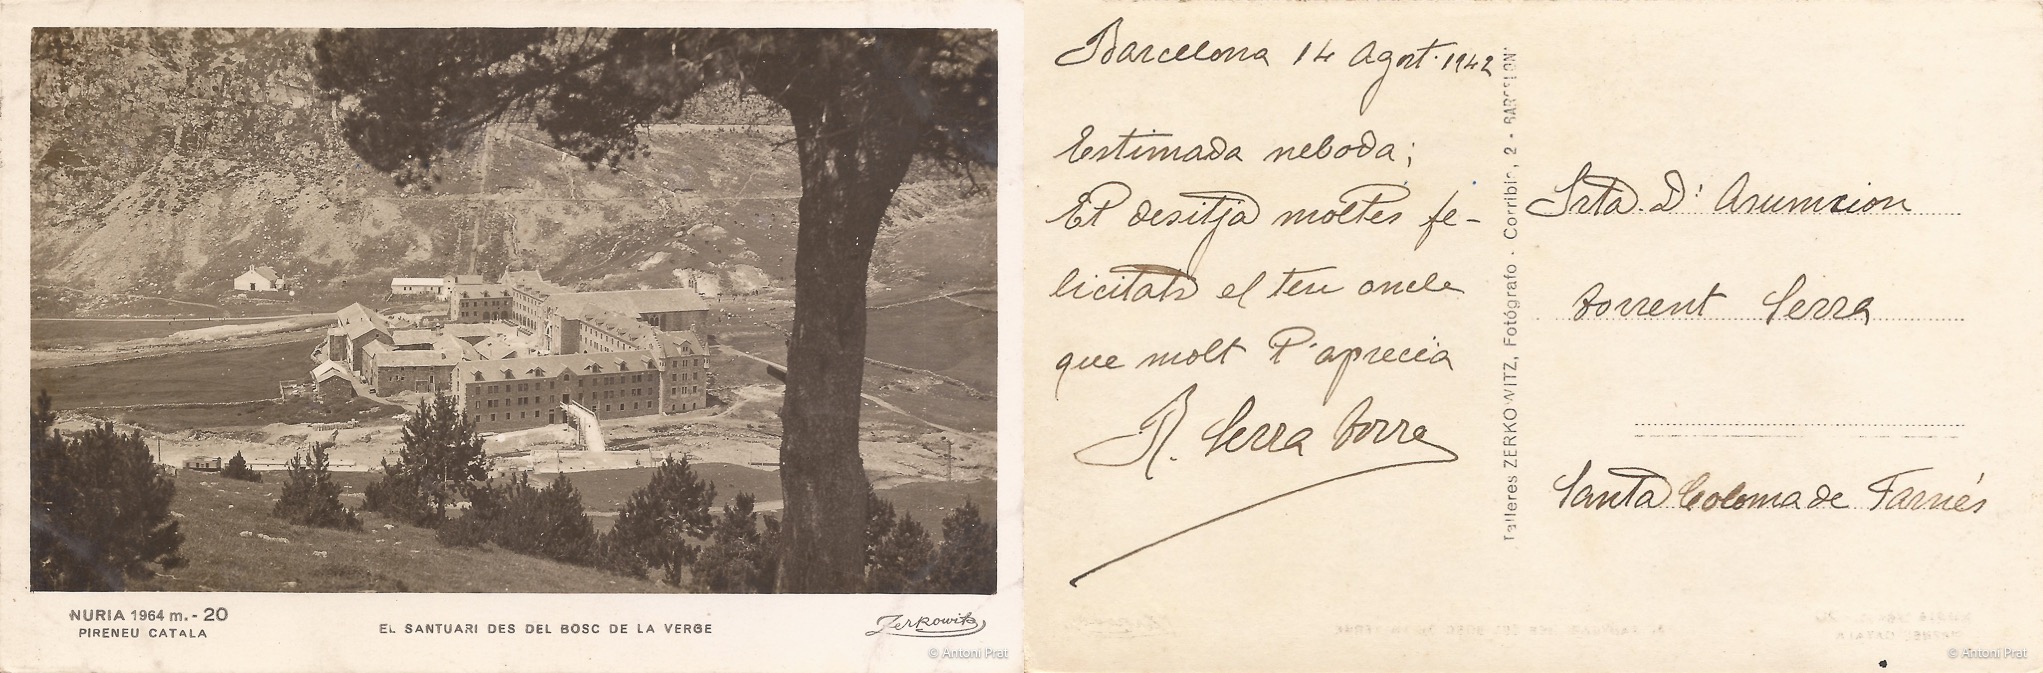 NURIA 1964 m. - 20
PIRENEU CATALA
EL SANTUARI DES DEL BOSC DE LA VERGE
Zerkowitz
© Antoni Prat
Barcelona 14 Agost. 1942
Estimada neboda;
Et desitja moltes fe-
licitats el teu oncle
que molt t'aprecia
R. Serra Torre
Talleres ZERKOWITZ, Fotógrafo - Corribia, 2 - BARCELON
Srta. D' Asumcion
Torrent Serra
Santa Coloma de Farnés
© Antoni Prat